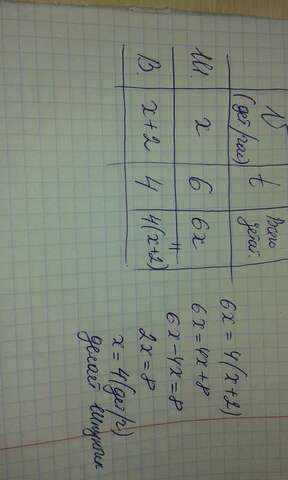 V (дет/час) t Всего детал.
Ш. x 6 6x
||
В. x+2 4 4(x+2)
6x=4(x+2)
6x=4x+8
6x-4x=8
2x=8
x=4(дет/ч)
делает Шпунтик